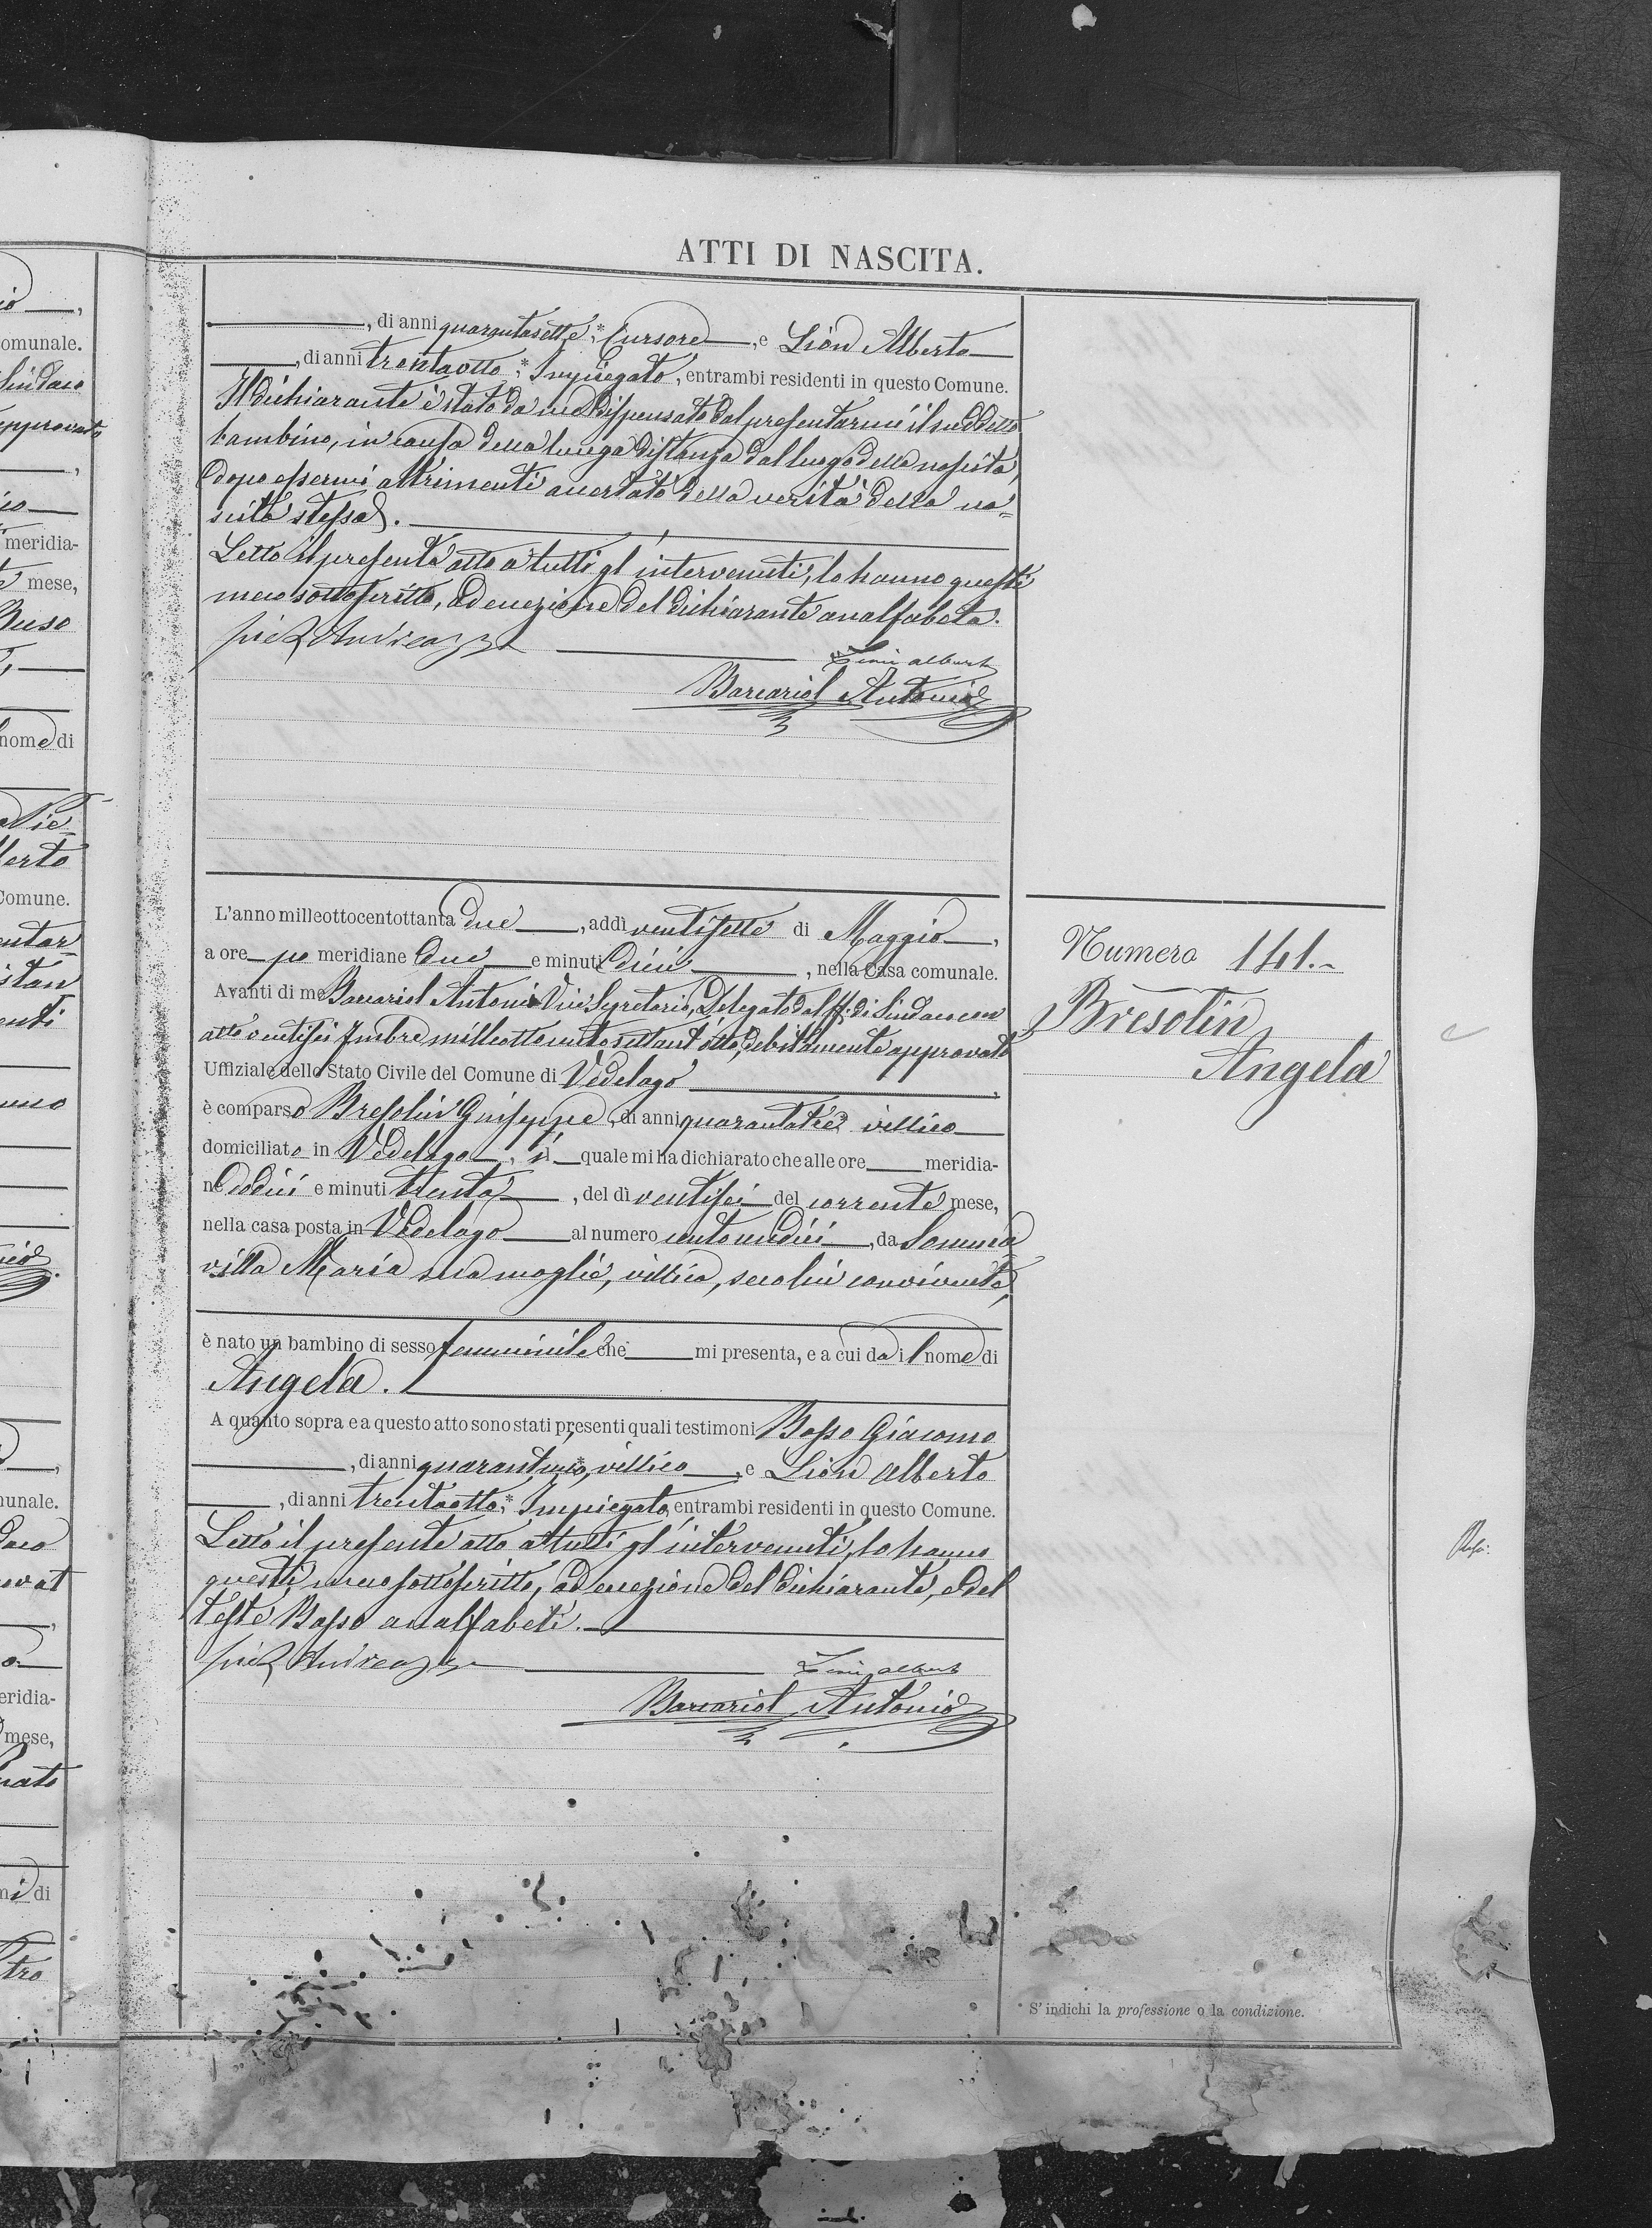 ATTI DI NASCITA.
, di anni quarantasette,* Cursore, e Lion Alberto
, di anni trentaotto,* Impiegato, entrambi residenti in questo Comune.
Il dichiarante è stato da me dispensato dal presentarmi il suddetto
bambino, in causa della lunga distanza dal luogo della nascita,
dopo essermi altrimenti accertato della verità della na=
scita stessa.
Letto il presente atto a tutti gl'intervenuti, lo hanno questi
meco sottoscritto, ad eccezione del dichiarante analfabeta.
Lion Albert
Barcariol Antonio
L'anno milleottocentottanta due, addì ventisette di Maggio,
a ore po meridiane due e minuti dieci, nella Casa comunale.
Avanti di me Barcariol Antonio Vice Segretario, Delegato dal ff. di Sindaco con
atto ventisei 7mbre milleottocentosettant'otto, debitamente approvato
Uffiziale dello Stato Civile del Comune di Vedelago,
è comparso Bresolin Giuseppe, di anni quarantatre villico
domiciliato in Vedelago, il quale mi ha dichiarato che alle ore meridia-
ne dodici e minuti trenta, del dì ventisei del corrente mese,
nella casa posta in Vedelago al numero centoundici, da Somma
villa Maria sua moglie, villica, seco lui convivente,
è nato un bambino di sesso femminile che mi presenta, e a cui da il nome di
Angela.
A quanto sopra e a questo atto sono stati presenti quali testimoni Basso Giacomo
, di anni quarantuno, villico, e Lion Alberto
, di anni trentaotto,* Impiegato, entrambi residenti in questo Comune.
Letto il presente atto a tutti gl'intervenuti, lo hanno
questi meco sottoscritto, ad eccezione del dichiarante, e del
teste Basso analfabeti.
Lion Albert
Barcariol Antonio
Numero 141.-
Bresolin
Angela
* S'indichi la professione o la condizione.
omunale.
Sindaco
approvato
meridia-
mese,
Buso
nome di
Pie
berto
Comune.
entar
istan
enti
munale.
daco
ovat
eridia-
mese,
nato
mi di
tro